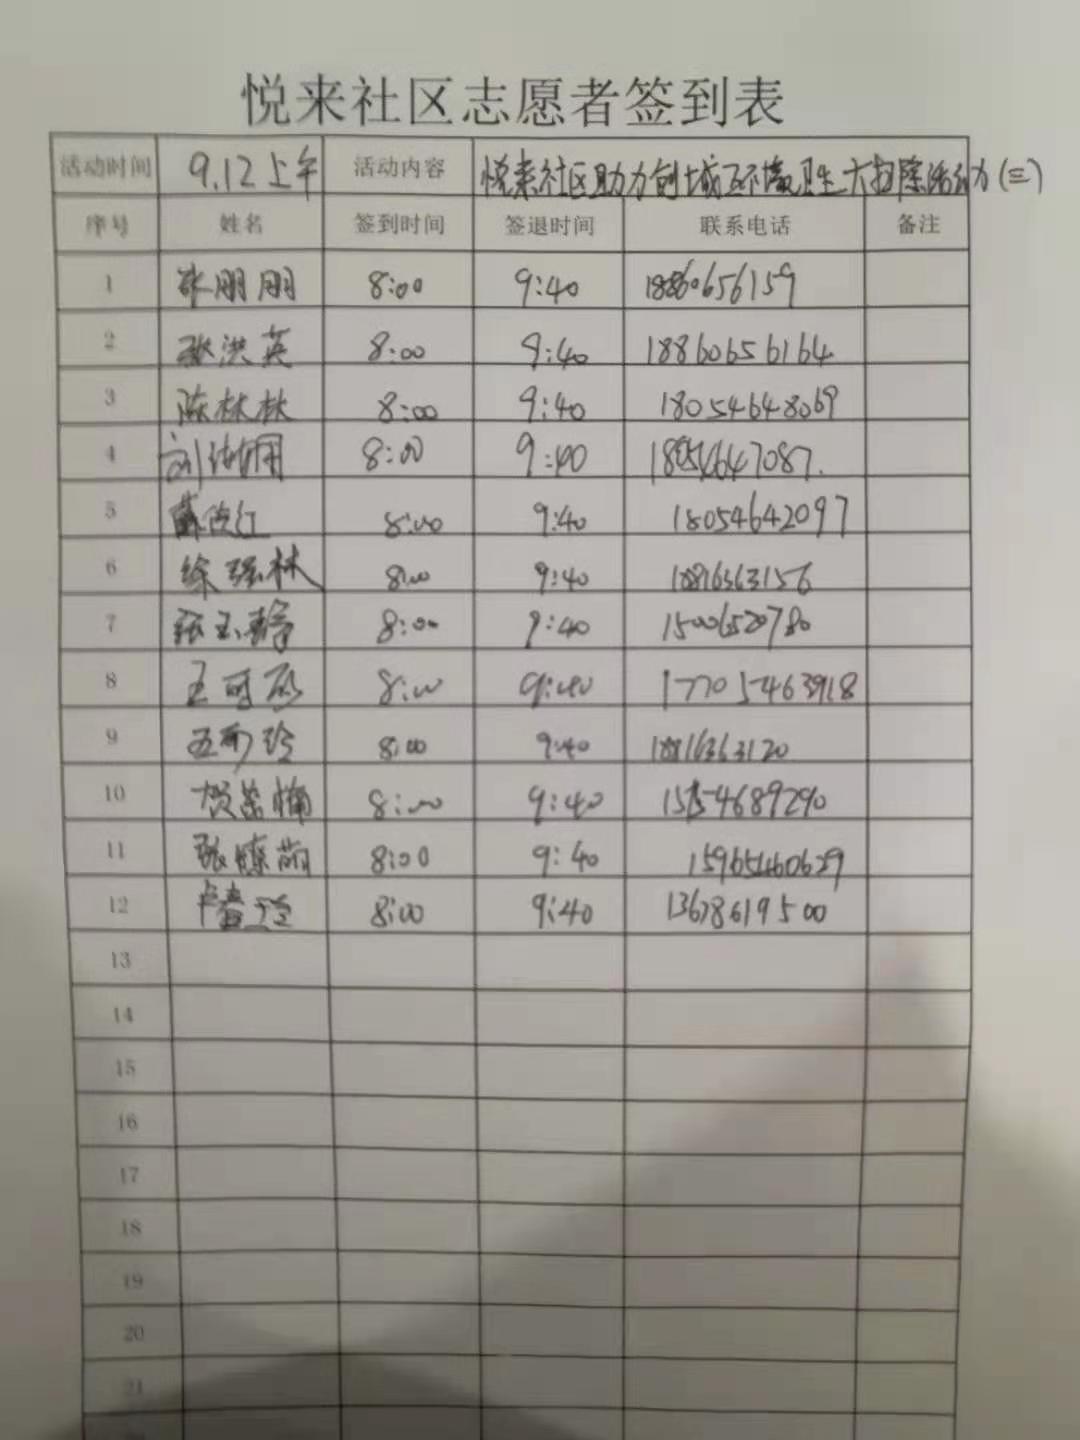 悦来社区志愿者签到表
活动时间 9.12上午 活动内容 悦来社区助力创城环境卫生大扫除活动(三)
序号 姓名 签到时间 签退时间 联系电话 备注
1 张朋朋 8:00 9:40 18860656159
2 张洪英 8:00 9:40 18860656164
3 陈林林 8:00 9:40 18054648069
4 8:00 9:40 18054647087.
5 8:00 9:40 18054642097
6 徐强林 8:00 9:40
7 张玉静 8:00 9:40 15006520780
8 8:00 9:40 17705463918
9 8:00 9:40
10 8:00 9:40 15154689290
11 8:00 9:40 15965460629
12 8:00 9:40 13678619500
13
14
15
16
17
18
19
20
21